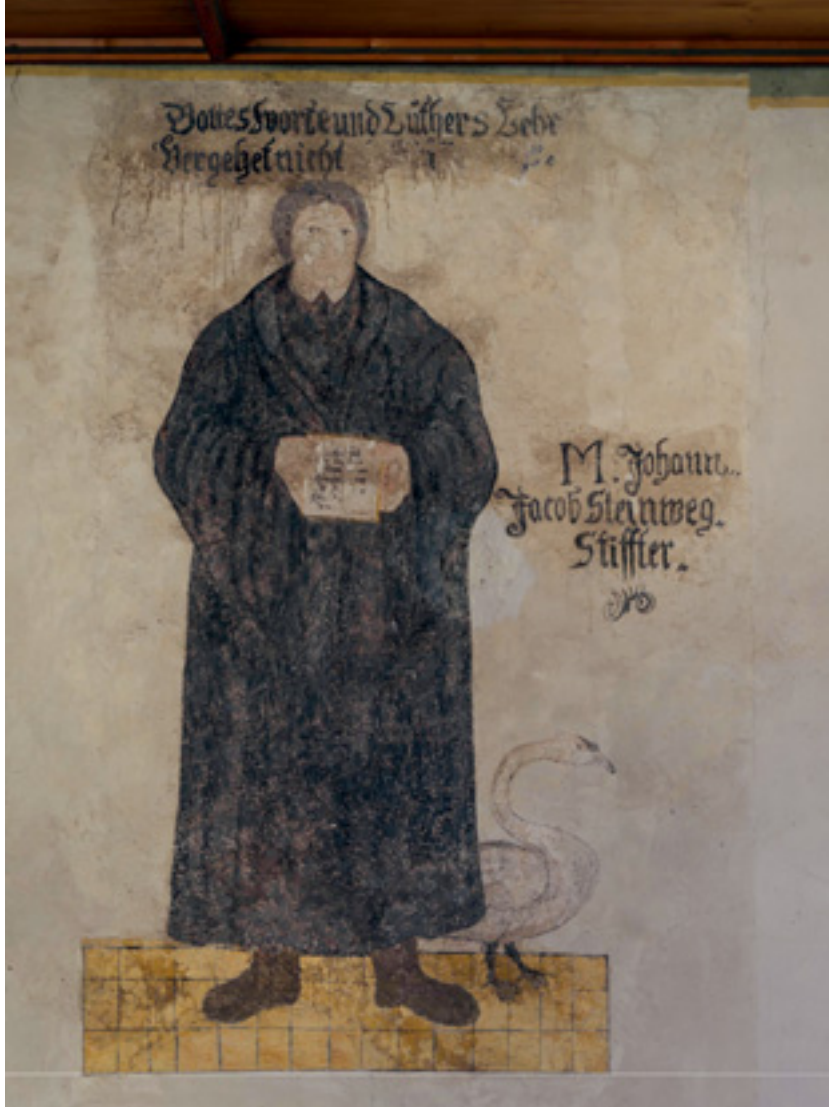 Gottes worte und Lüthers Lehr
Vergehet nicht
M. Johann
Jacob Steinweg.
Stiffter.